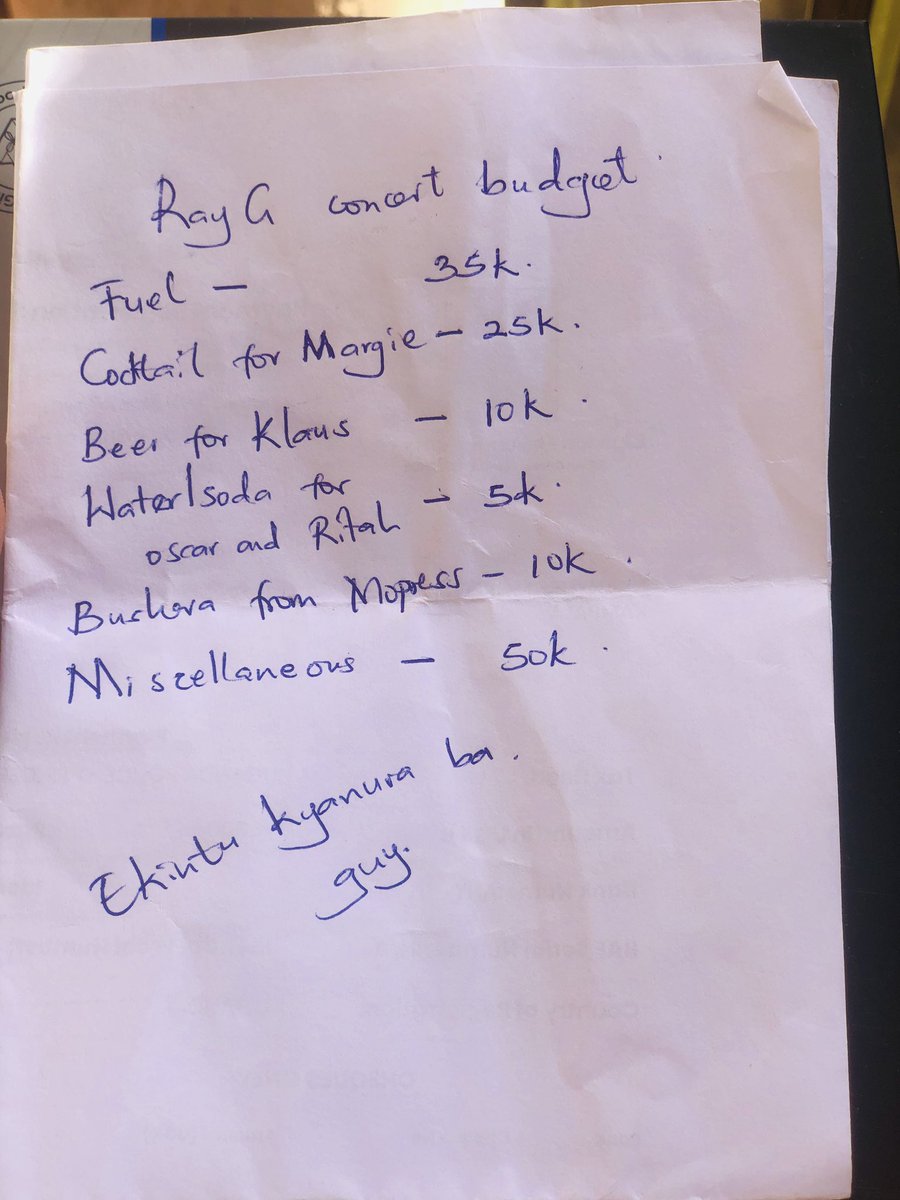 Ray G concert budget.
Fuel - 35k.
Cocktail for Margie - 25k.
Beer for Klaus - 10k.
Water/soda for
oscar and Ritah - 5k.
Bushera from Mopress - 10k.
Miscellaneous - 50k.
Ekintu kyanura ba.
guy.